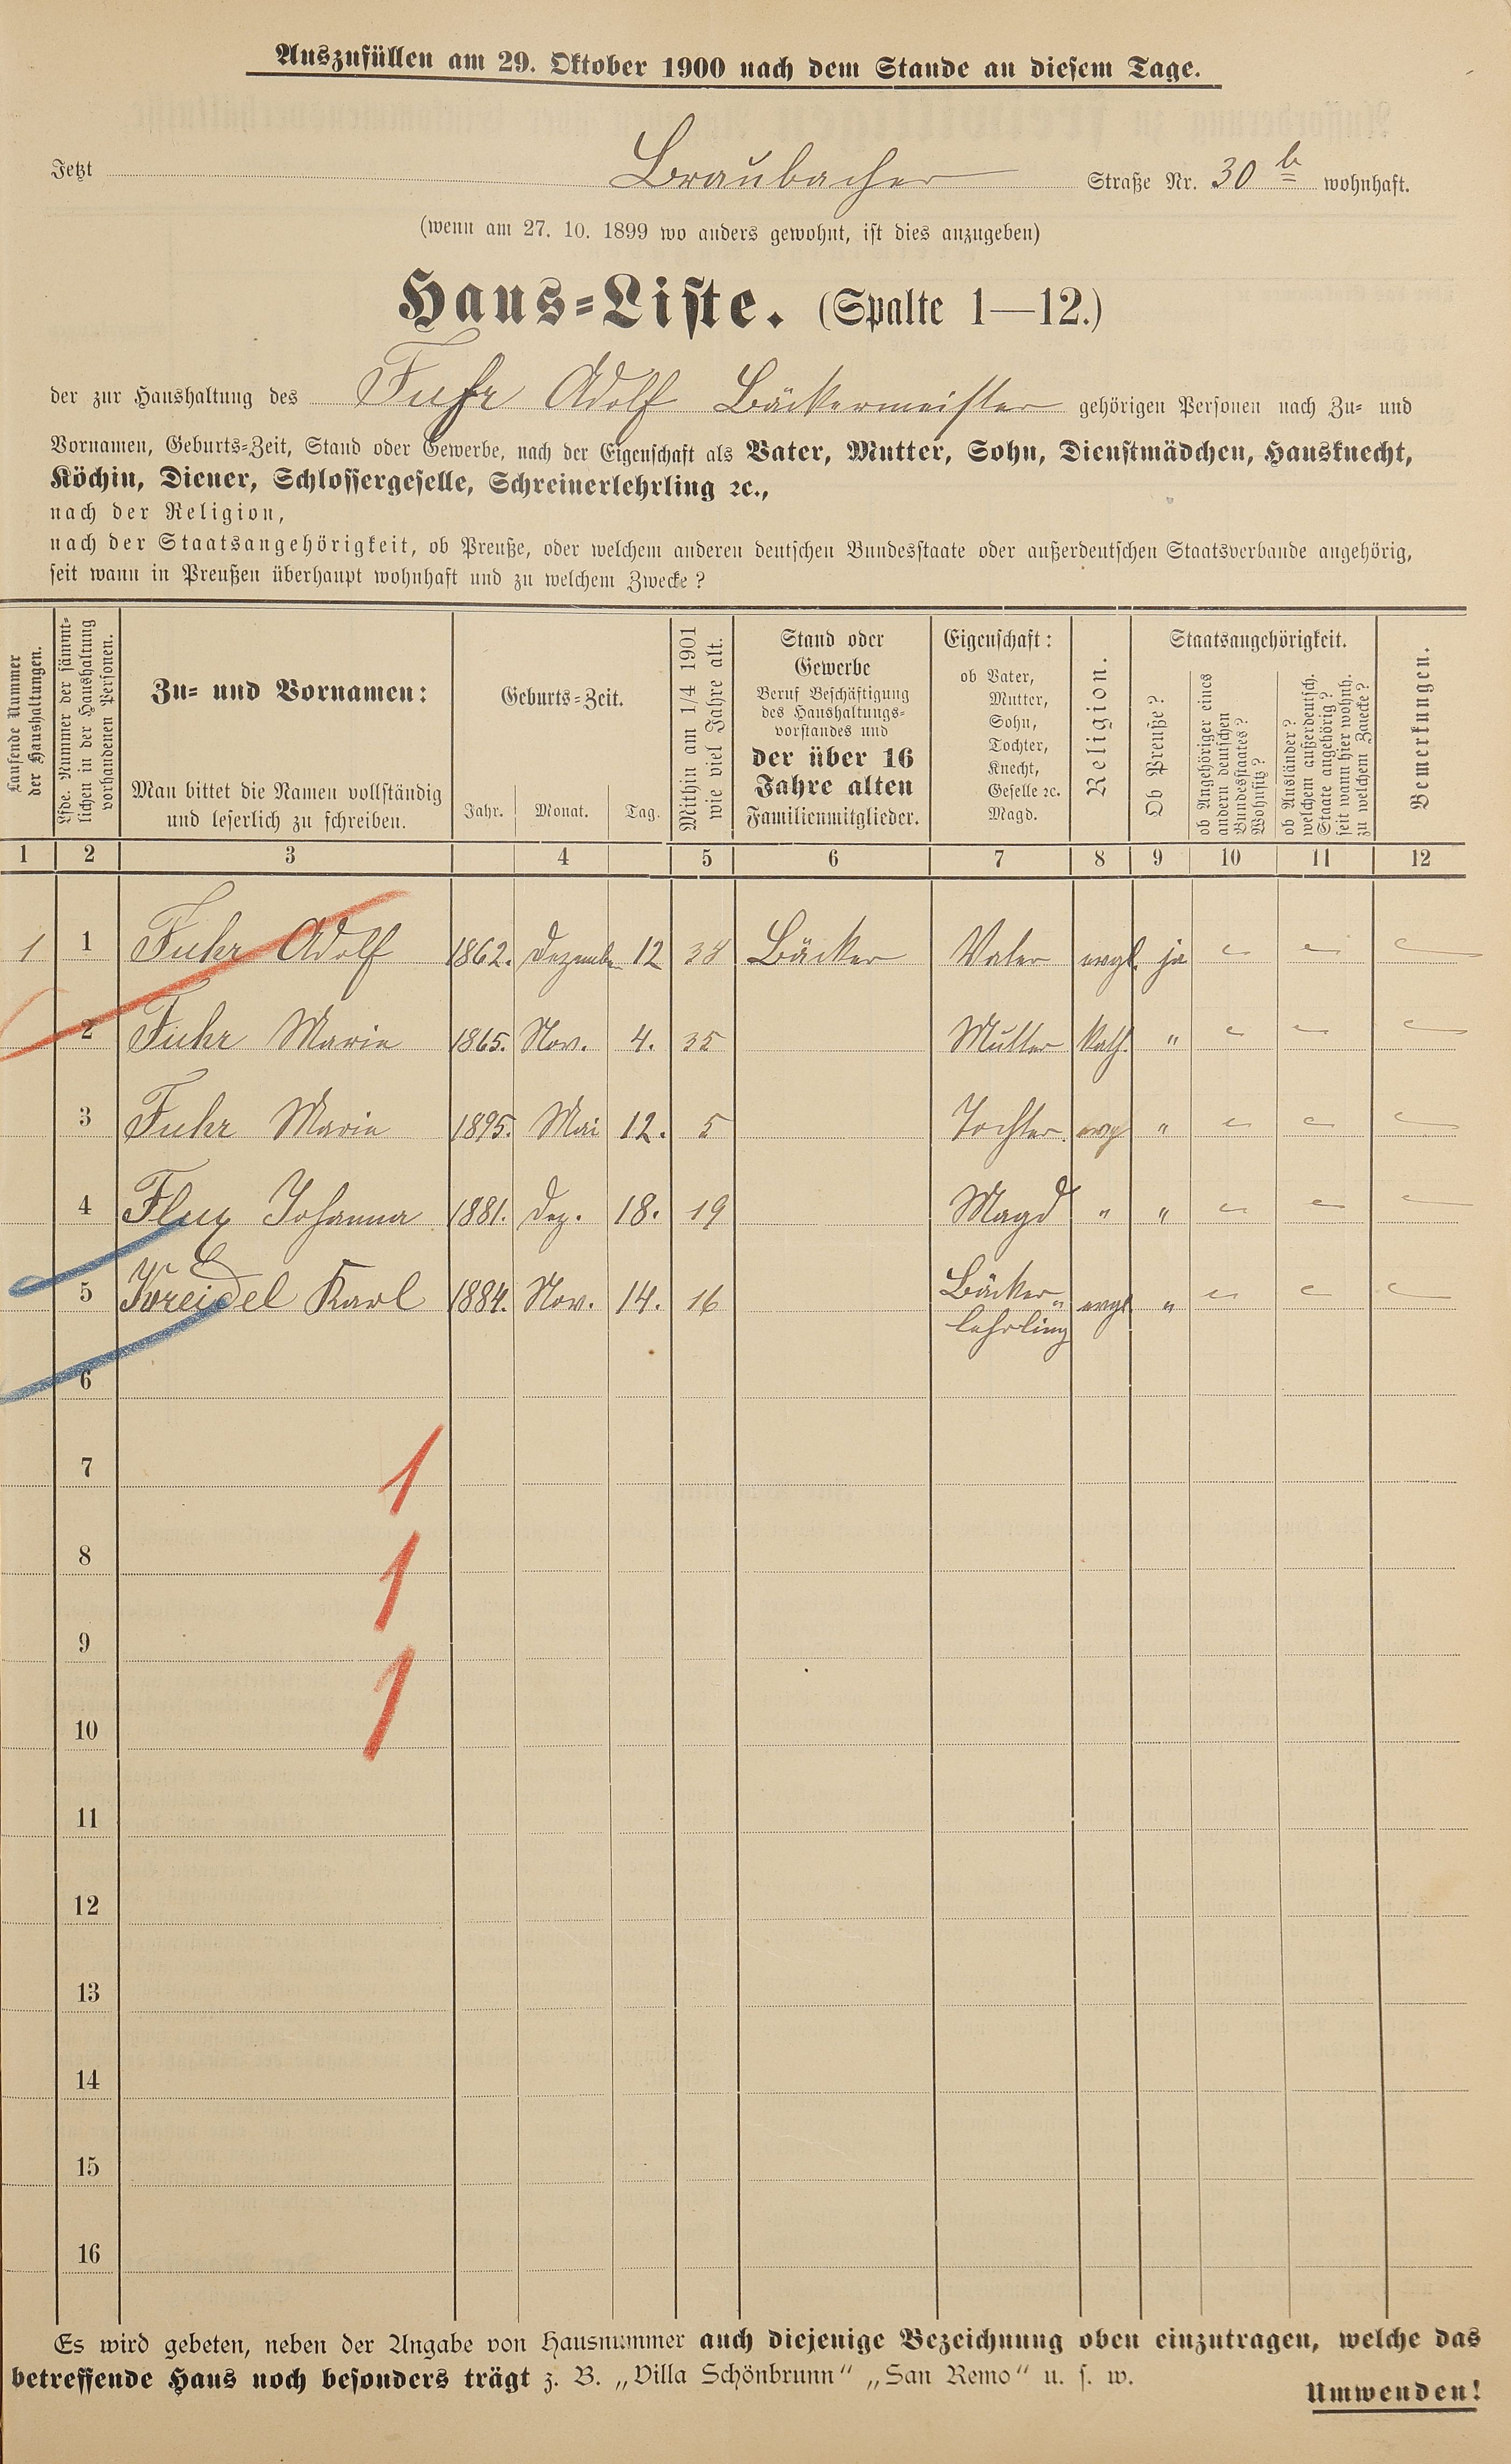 Auszufüllen am 29. Oktober 1900 nach dem Stande an diesem Tage.
Jetzt Braubacher Straße Nr. 30 b wohnhaft.
(wenn am 27. 10. 1899 wo anders gewohnt, ist dies anzugeben)
Haus-Liste. (Spalte 1—12.)
der zur Haushaltung des Fuhr Adolf Bäckermeister gehörigen Personen nach Zu- und
Vornamen, Geburts-Zeit, Stand oder Gewerbe, nach der Eigenschaft als Vater, Mutter, Sohn, Dienstmädchen, Hausknecht,
Köchin, Diener, Schlossergeselle, Schreinerlehrling ꝛc.,
nach der Religion,
nach der Staatsangehörigkeit, ob Preuße, oder welchem anderen deutschen Bundesstaate oder außerdeutschen Staatsverbande angehörig,
seit wann in Preußen überhaupt wohnhaft und zu welchem Zwecke?
Laufende Nummer
der Haushaltungen.
Lfde. Nummer der sämmt-
lichen in der Haushaltung
vorhandenen Personen.
Zu- und Vornamen:
Man bittet die Namen vollständig
und leserlich zu schreiben.
Geburts-Zeit.
Jahr. Monat. Tag.
Mithin am 1/4 1901
wie viel Jahre alt.
Stand oder
Gewerbe
Beruf Beschäftigung
des Haushaltungs-
vorstandes und
der über 16
Jahre alten
Familienmitglieder.
Eigenschaft:
ob Vater,
Mutter,
Sohn,
Tochter,
Knecht,
Geselle ꝛc.
Magd.
Religion.
Staatsangehörigkeit.
Ob Preuße?
ob Angehöriger eines
andern deutschen
Bundesstaates?
Wohnsitz?
ob Ausländer?
welchem außerdeutsch.
Staate angehörig?
seit wann hier wohnh.
zu welchem Zwecke?
Bemerkungen.
1 2 3 4 5 6 7 8 9 10 11 12
1 1 Fuhr Adolf 1862. Dezember 12 38 Bäcker Vater evgl. ja
2 Fuhr Marie 1865. Nov. 4. 35 Mutter Kath. "
3 Fuhr Marie 1895. Mai 12. 5 Tochter evg "
4 Johanna 1881. Dez. 18. 19 Magd " "
5 Kreidel Karl 1884. Nov. 14. 16 Bäcker- evgl "
lehrling
6
7 1
8 1
9
10 1
11
12
13
14
15
16
Es wird gebeten, neben der Angabe von Hausnummer auch diejenige Bezeichnung oben einzutragen, welche das
betreffende Haus noch besonders trägt z. B. „Villa Schönbrunn" „San Remo" u. s. w.
Umwenden!